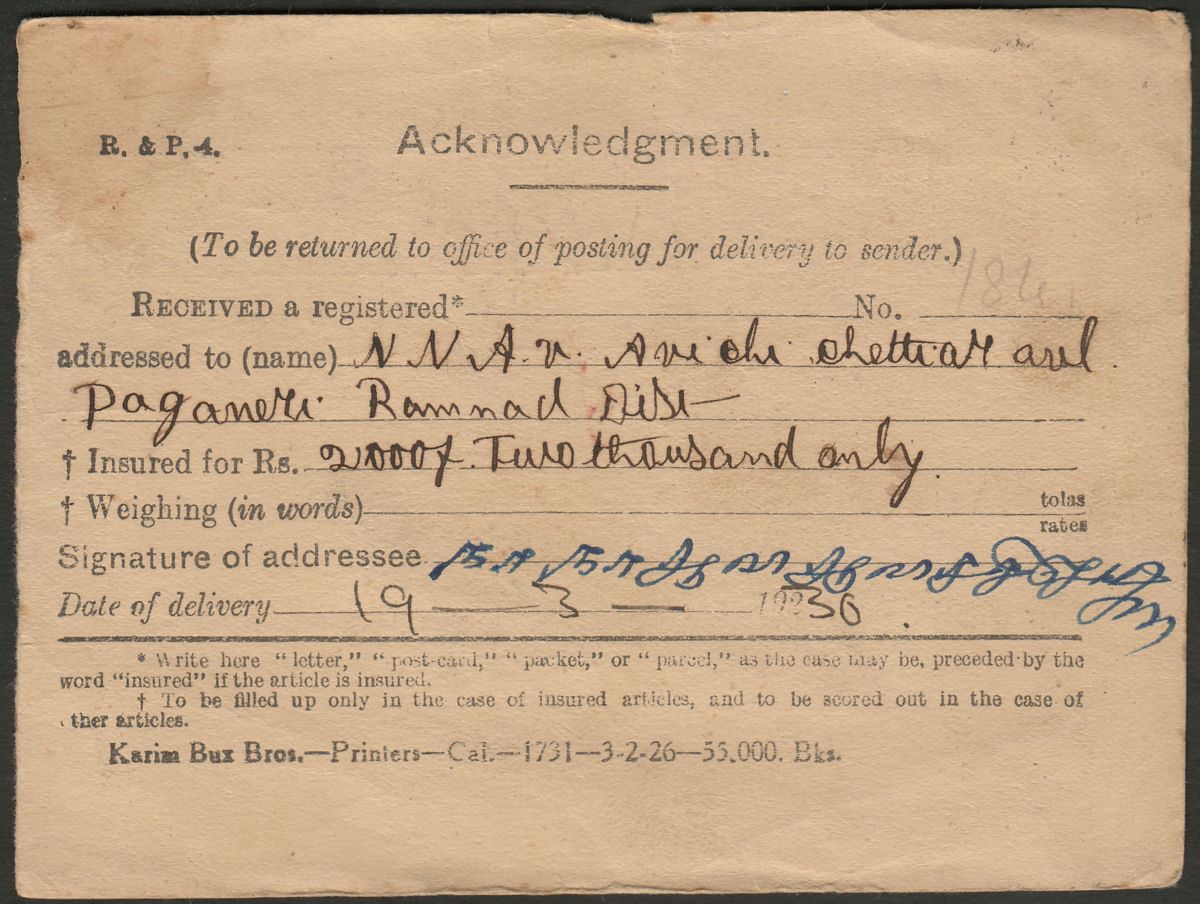 R. & P. 4.
Acknowledgment.
(To be returned to office of posting for delivery to sender.)
RECEIVED a registered* No.
addressed to (name) N N A. v. Avichi chettiar
Paganeri Ramnad Dist
† Insured for Rs. 2000/. Two thousand only.
† Weighing (in words) tolas
rates
Signature of addressee
Date of delivery 19 — 3 — 30
* Write here "letter," "post-card," "packet," or "parcel," as the case may be, preceded by the
word "insured" if the article is insured.
† To be filled up only in the case of insured articles, and to be scored out in the case of
ther articles.
Karim Bux Bros.—Printers—Cal.—1731—3-2-26—55,000. Bks.